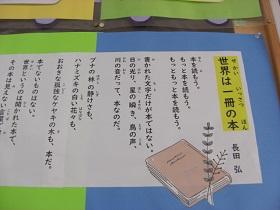 世界は一冊の本
せかい いっさつ ほん
長田 弘
本を読もう。
もっと本を読もう。
もっともっと本を読もう。
書かれた文字だけが本ではない。
日の光り、星の瞬き、鳥の声、
川の音だって、本なのだ。
ブナの林の静けさも、
ハナミズキの白い花々も、
おおきな孤独なケヤキの木も、本だ。
本でないものはない。
世界というのは開かれた本で、
その本は見えない言葉で